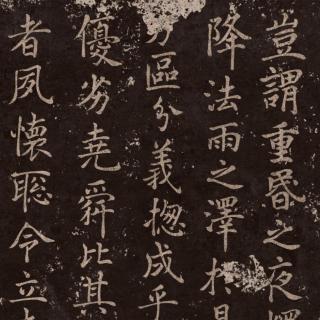 豈謂重昏之夜
降法雨之澤
區分義揔成乎
優劣堯舜比其
者夙懷聡令立